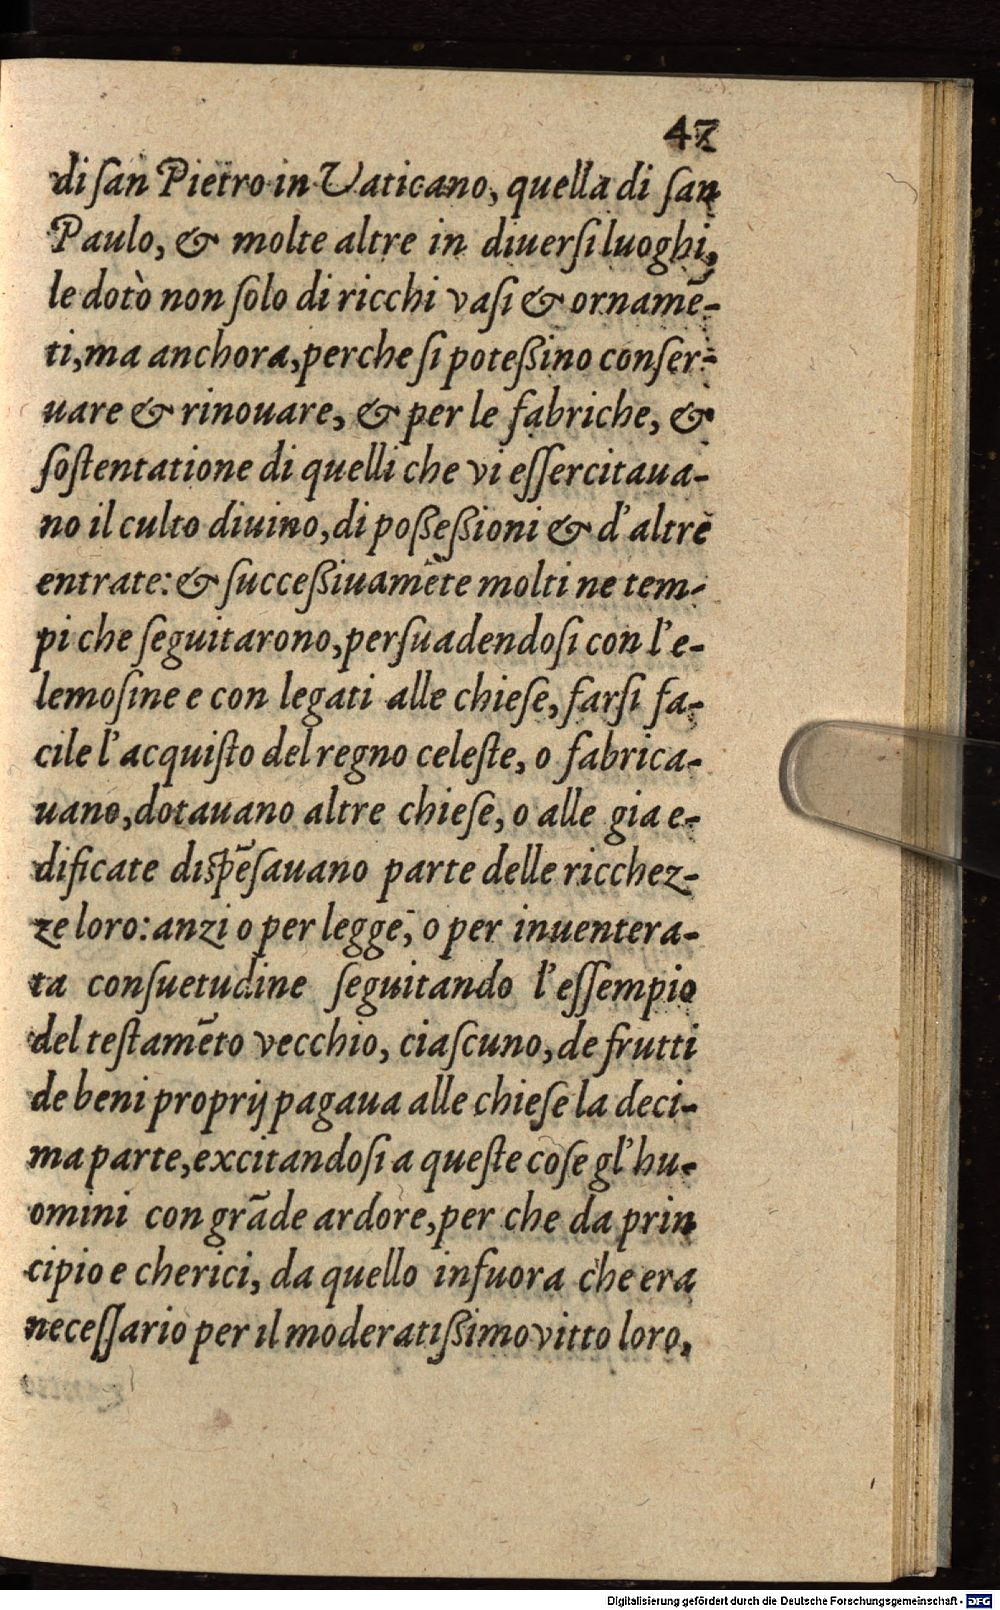 42
di ſan Pietro in Vaticano, quella di ſan
Paulo, & molte altre in diuerſi luoghi,
le dotò non ſolo di ricchi vaſi & ornamē-
ti, ma anchora, perche ſi poteßino conſer-
uare & rinouare, & per le fabriche, &
ſoſtentatione di quelli che vi eſſercitaua-
no il culto diuino, di poßeßioni & d'altre
entrate: & ſucceßiuamēte molti ne tem-
pi che ſeguitarono, perſuadendoſi con l'e-
lemoſine e con legati alle chieſe, farſi fa-
cile l'acquiſto del regno celeſte, o fabrica-
uano, dotauano altre chieſe, o alle gia e-
dificate diſpēſauano parte delle ricchez-
ze loro: anzi o per legge, o per inuentera-
ta conſuetudine ſeguitando l'eſſempio
del teſtamēto vecchio, ciaſcuno, de frutti
de beni proprij pagaua alle chieſe la deci-
ma parte, excitandoſi a queſte coſe gl'hu-
omini con grāde ardore, per che da prin
cipio e cherici, da quello infuora che era
neceſſario per il moderatißimo vitto loro,
Digitalisierung gefördert durch die Deutsche Forschungsgemeinschaft - DFG